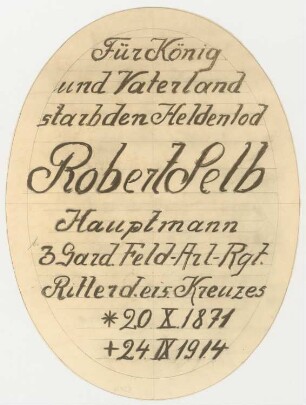 Für König
und Vaterland
starb den Heldentod
Robert Selb
Hauptmann
3 Gard. Feld-Art-Rgt.
Ritter d. eis. Kreuzes
*20 X. 1871
+24. IX 1914